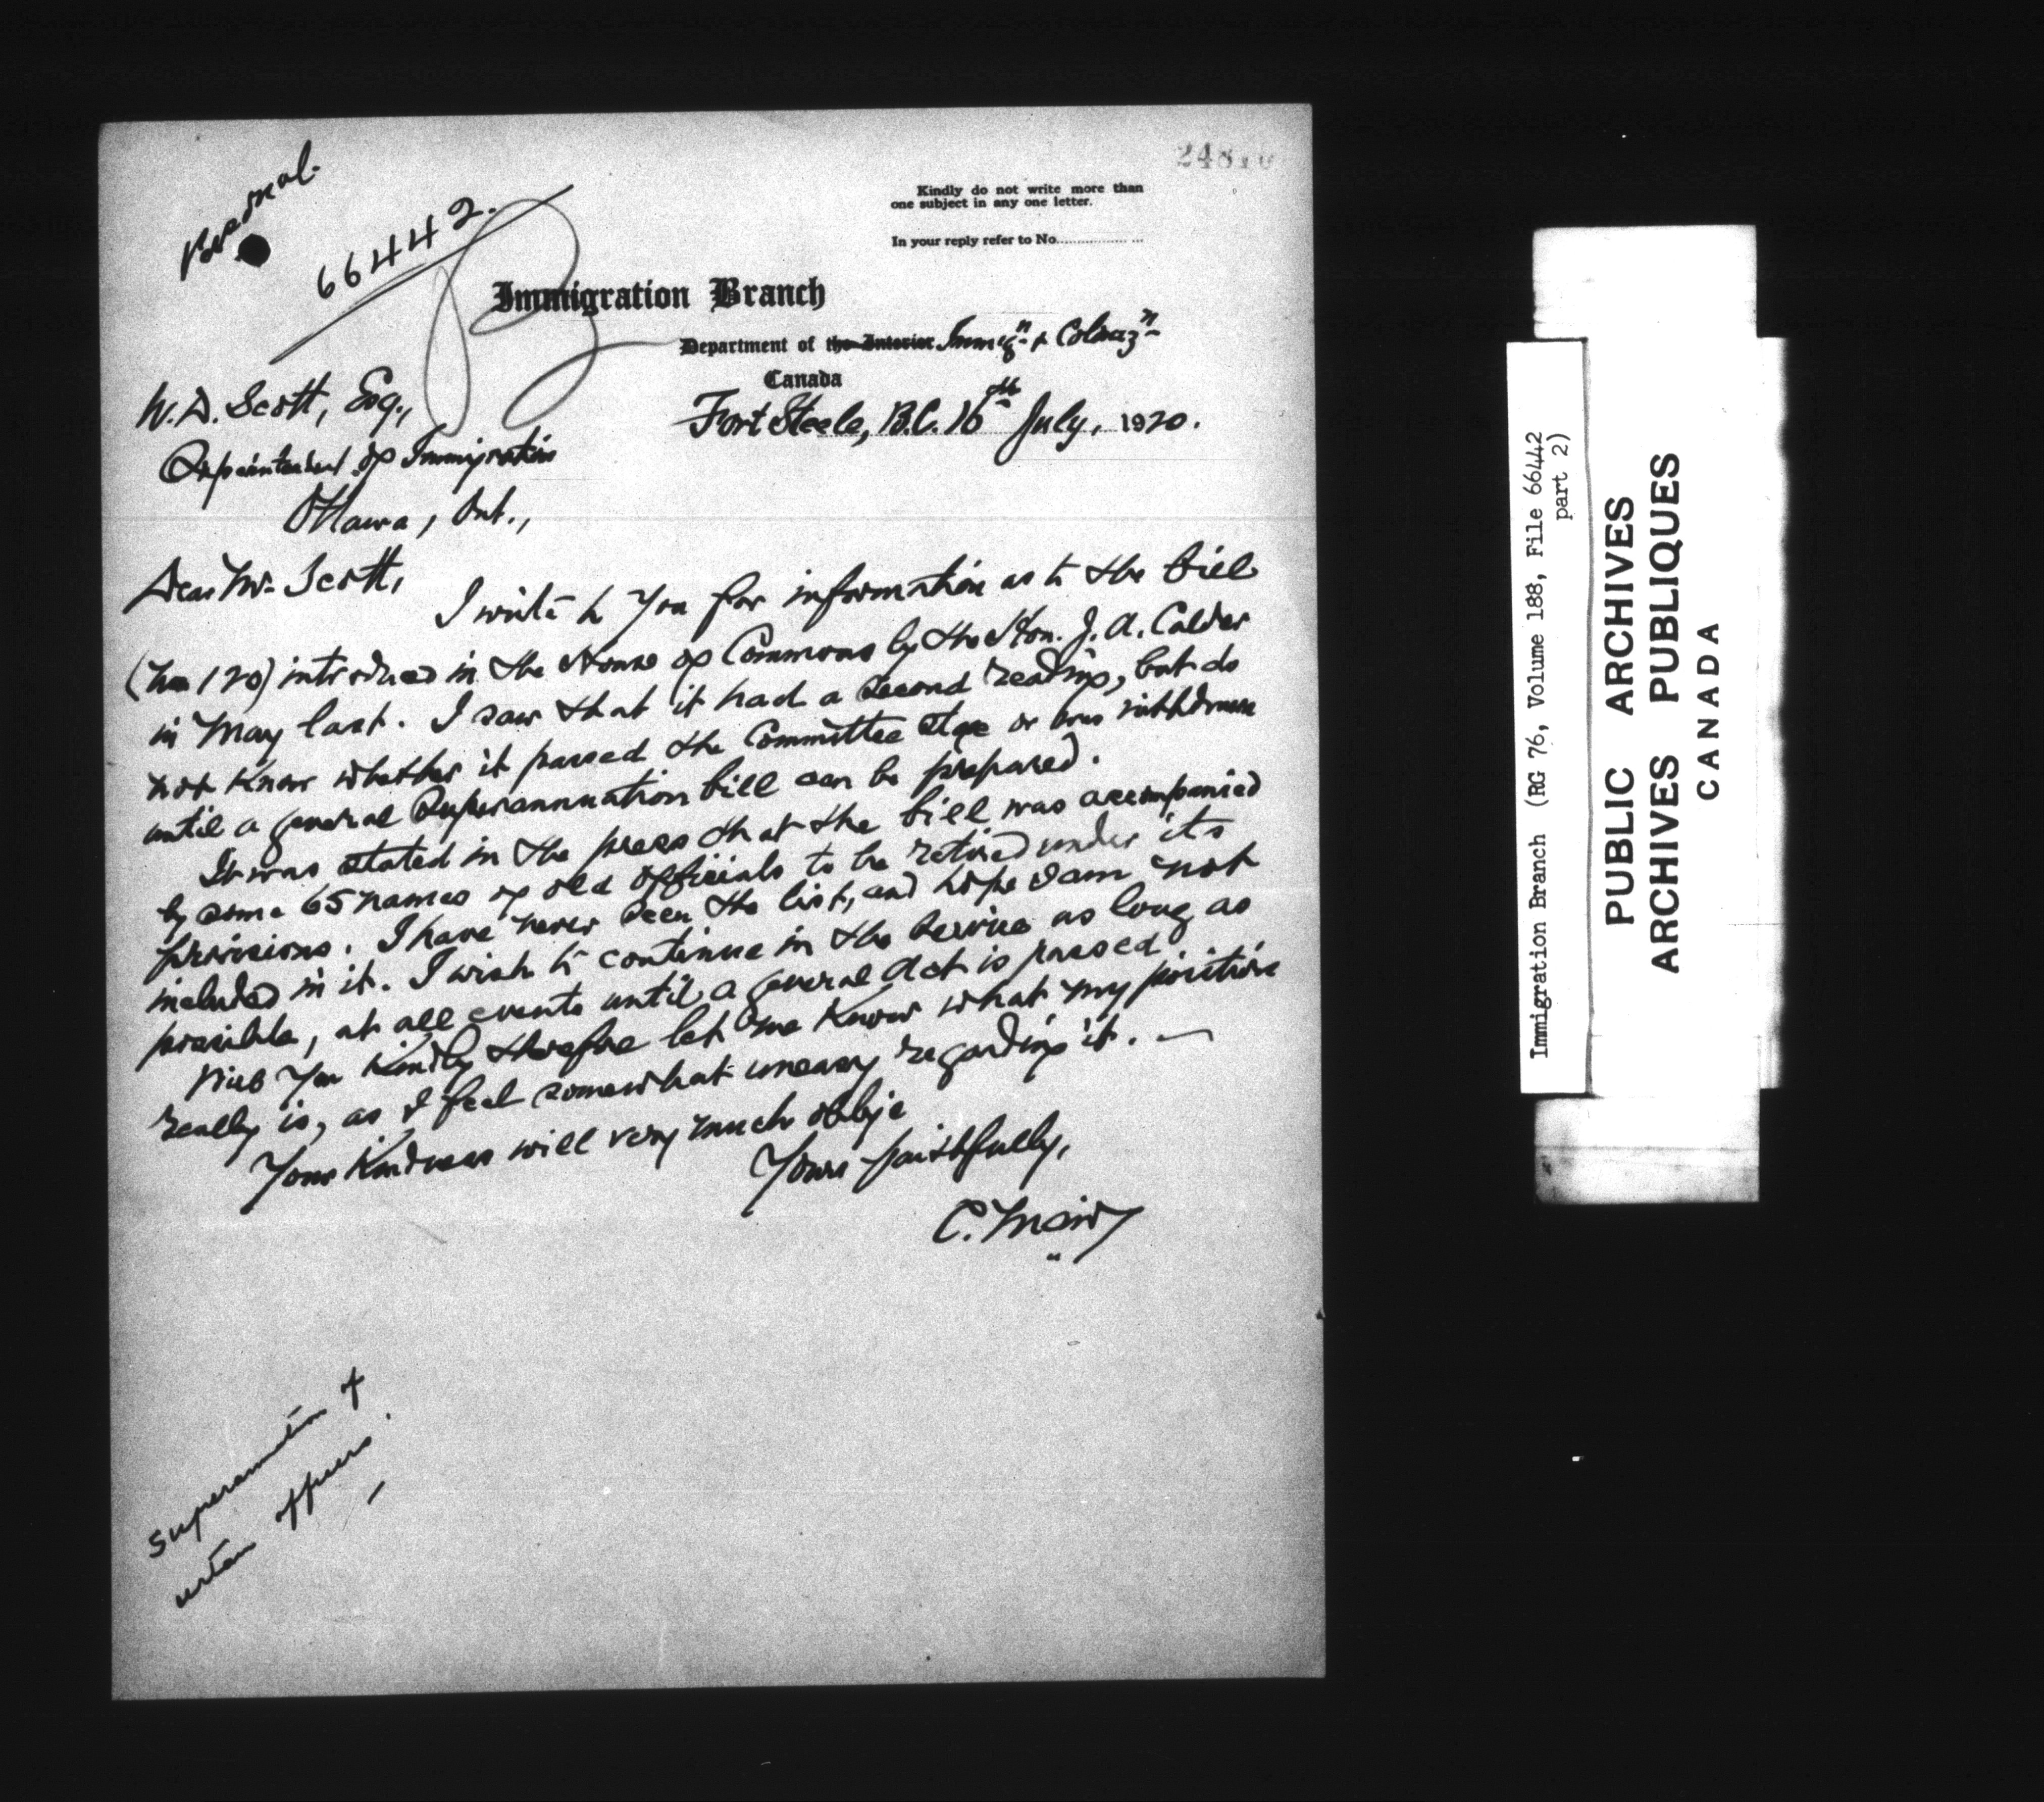 Personal.
66442.
Kindly do not write more than
one subject in any one letter.
In your reply refer to No.
Immigration Branch
Department of the Interior Immig<sup>n</sup> & Coloniz<sup>n</sup>
Canada
Fort Steele, B.C. 16th July, 1920.
W. D. Scott, Esq.,
Superintendent of Immigration
Ottawa, Ont.,
Dear Mr. Scott,
I write to you for information as to the bill
(No 120) introduced in the House of Commons by the Hon. J. A. Calder
in May last. I saw that it had a second reading, but do
not know whether it passed the Committee stage or was withdrawn
until a general Superannuation bill can be prepared.
It was stated in the press that the bill was accompanied
by some 65 names of old officials to be retired under its
provisions. I have never seen the list, and hope I am not
included in it. I wish to continue in the Service as long as
possible, at all events until a general Act is passed.
Will you kindly therefore let me know what my position
really is, as I feel somewhat uneasy regarding it. —
Your kindness will very much oblige
Yours faithfully,
C. Mair
Superannuation of
certain officers.
Immigration Branch (RG 76, Volume 188, File 66442
part 2)
PUBLIC ARCHIVES
ARCHIVES PUBLIQUES
CANADA